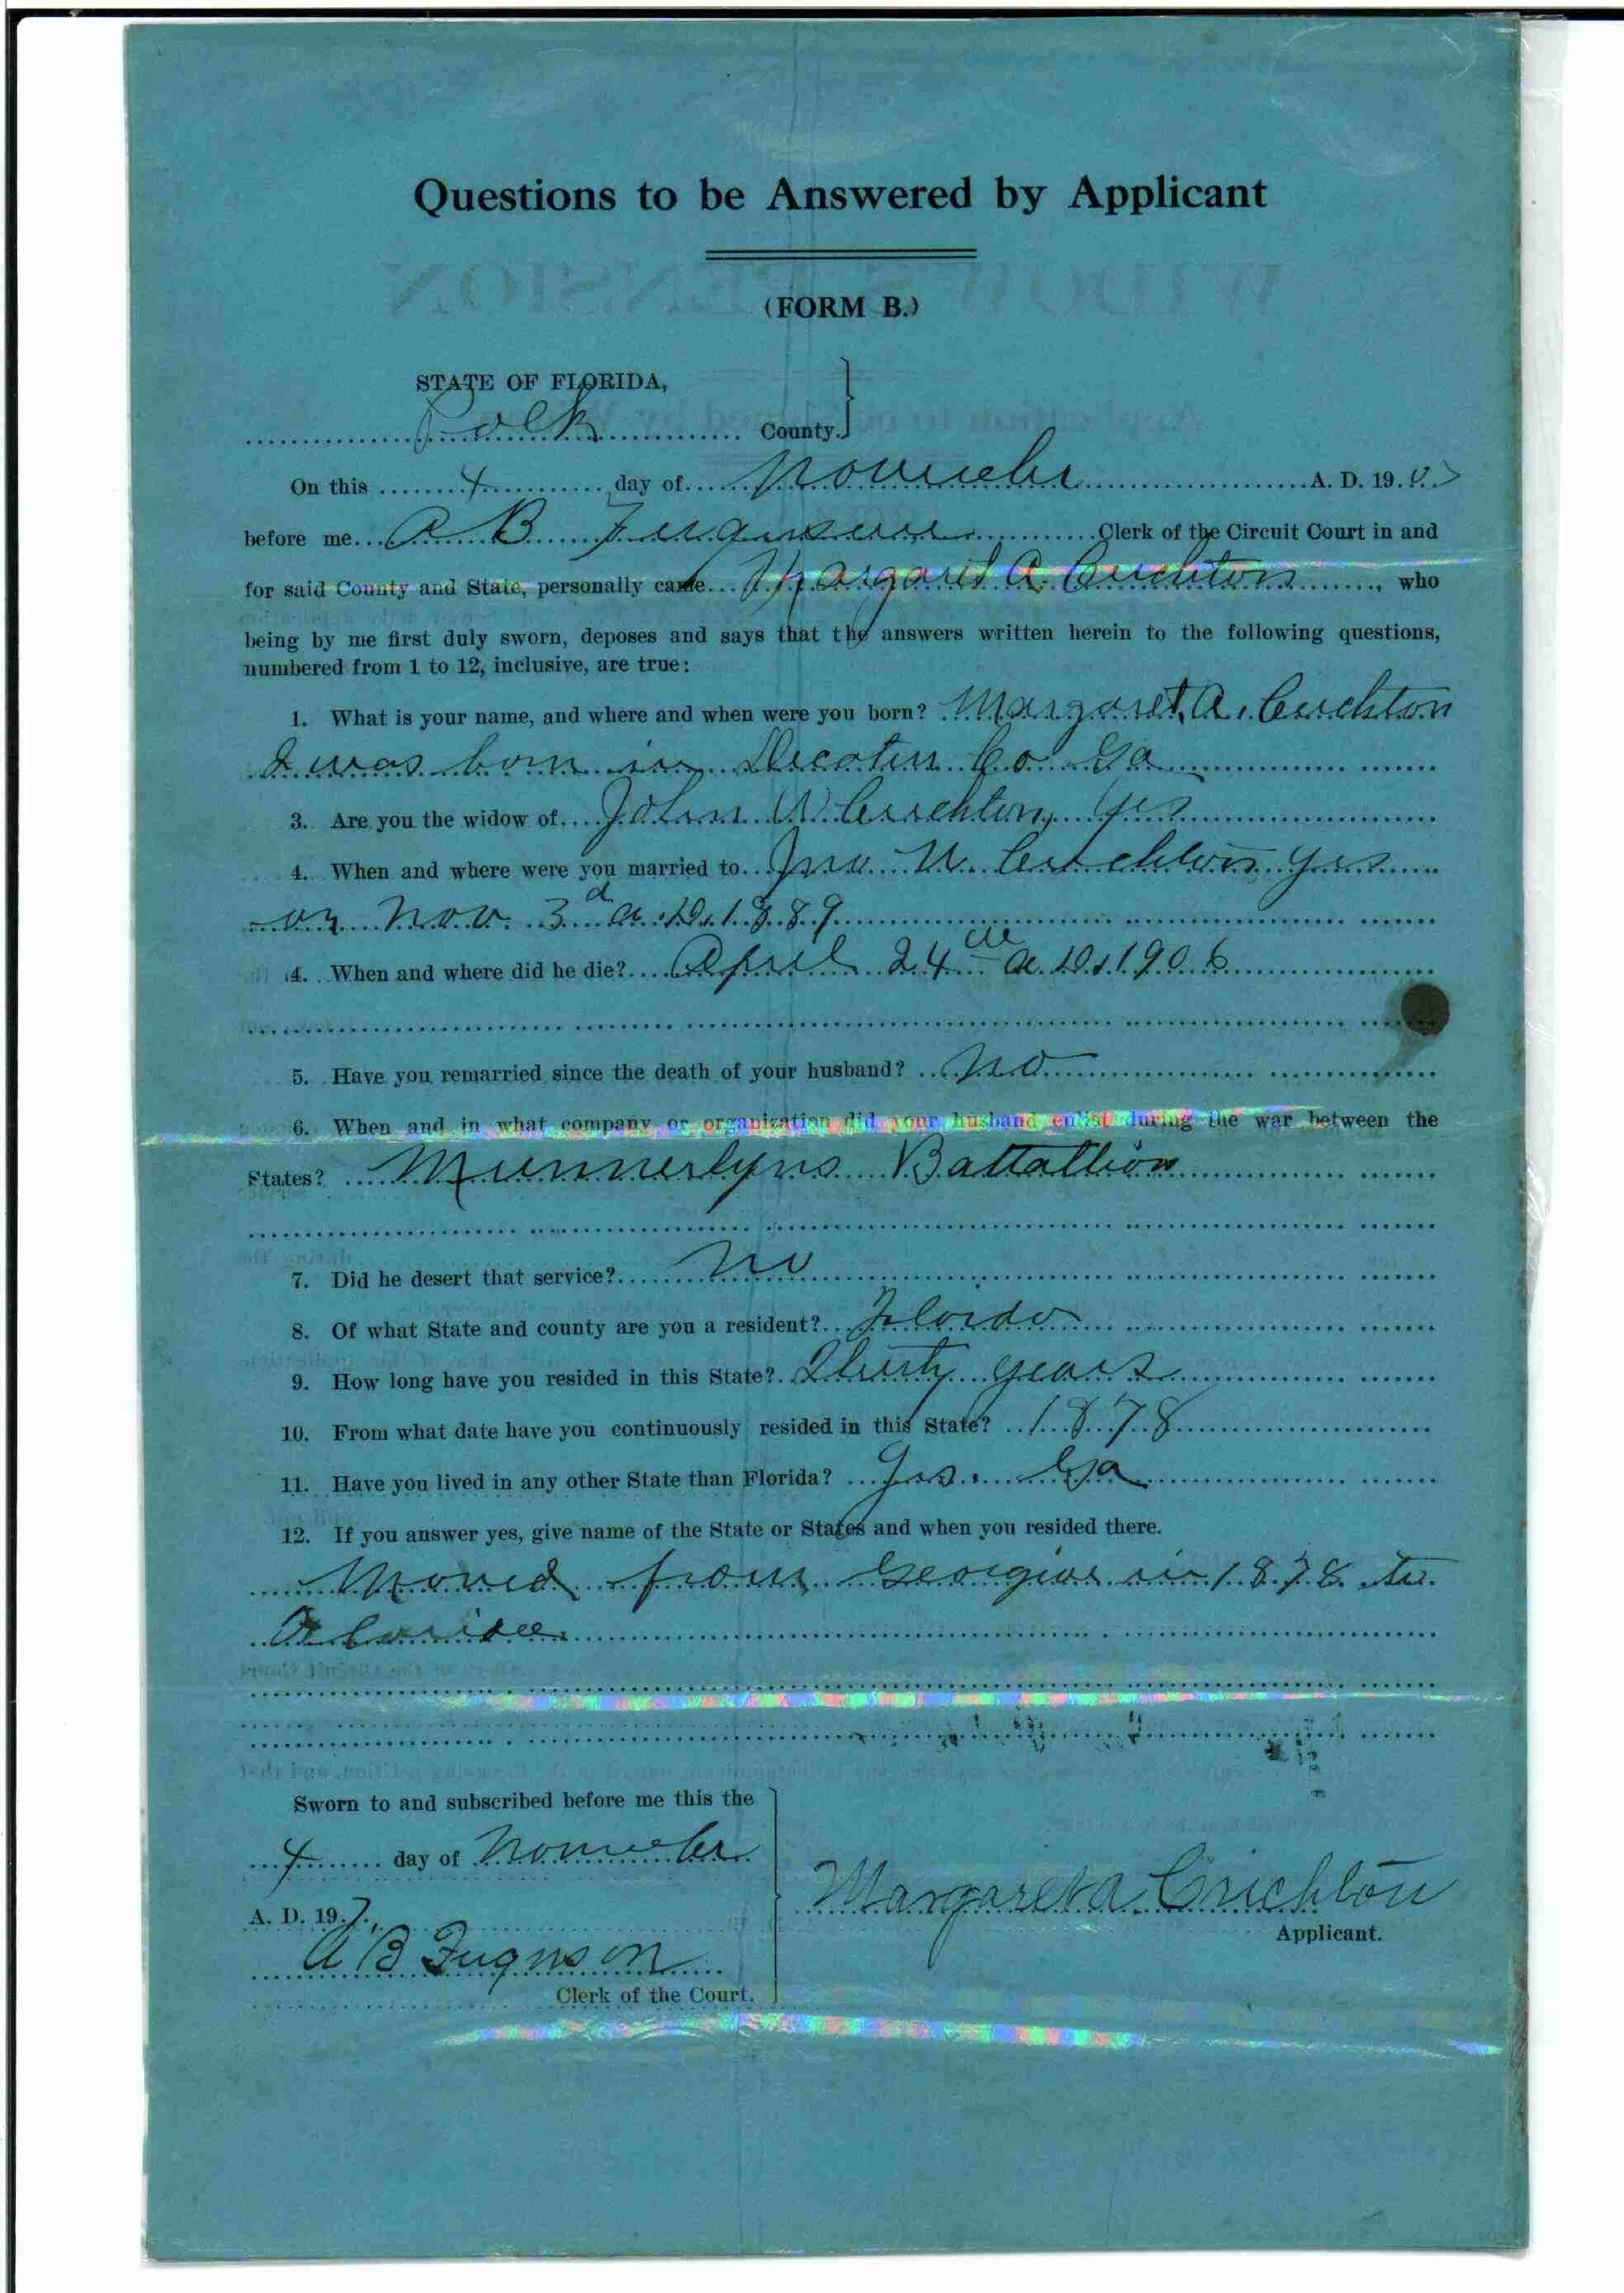 Questions to be Answered by Applicant
(FORM B.)
STATE OF FLORIDA,
Polk County.
On this 4 day of November A. D. 1907
before me A B Ferguson Clerk of the Circuit Court in and
for said County and State, personally came Margaret A. Crichton, who
being by me first duly sworn, deposes and says that the answers written herein to the following questions,
numbered from 1 to 12, inclusive, are true:
1. What is your name, and where and when were you born? Margaret, A, Crichton
I was born in Decatur Co Ga
3. Are you the widow of John W Crichton, Yes
4. When and where were you married to Jno W. Crichton yes
on Nov. 3d A. D. 1889
4. When and where did he die? April 24th A. D. 1906
5. Have you remarried since the death of your husband? No
6. When and in what company or organization did your husband enlist during the war between the
States? Munnerlyns Battallion
7. Did he desert that service? No
8. Of what State and county are you a resident? Florida
9. How long have you resided in this State? Thirty years
10. From what date have you continuously resided in this State? 1878
11. Have you lived in any other State than Florida? Yes. Ga
12. If you answer yes, give name of the State or States and when you resided there.
Moved from Georgia in 1878 to
Florida
Sworn to and subscribed before me this the
4 day of November
A. D. 197.
A B Ferguson
Clerk of the Court.
Margaret A. Crichton
Applicant.